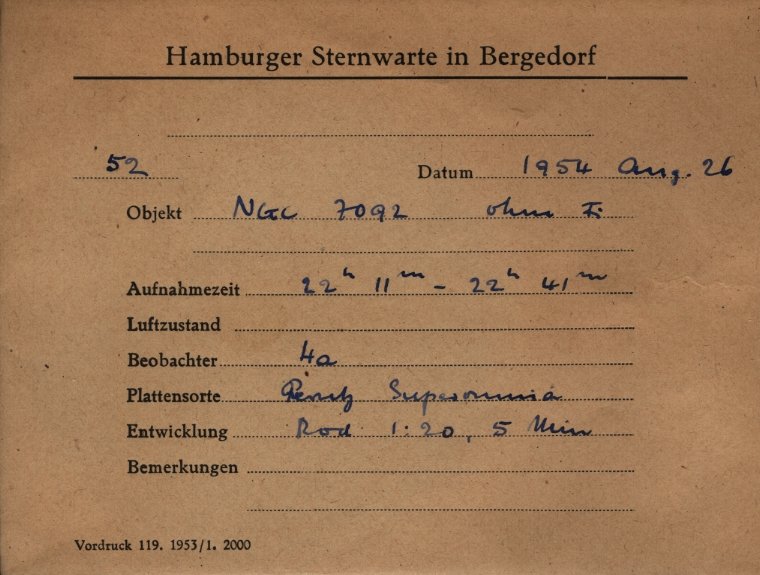 Hamburger Sternwarte in Bergedorf
52 Datum 1954 Aug. 26
Objekt NGC 7092 ohne Fi
Aufnahmezeit 22h 11m - 22h 41m
Luftzustand
Beobachter Ha
Plattensorte Perutz Superomnia
Entwicklung Rod 1:20, 5 Min
Bemerkungen
Vordruck 119. 1953/1. 2000